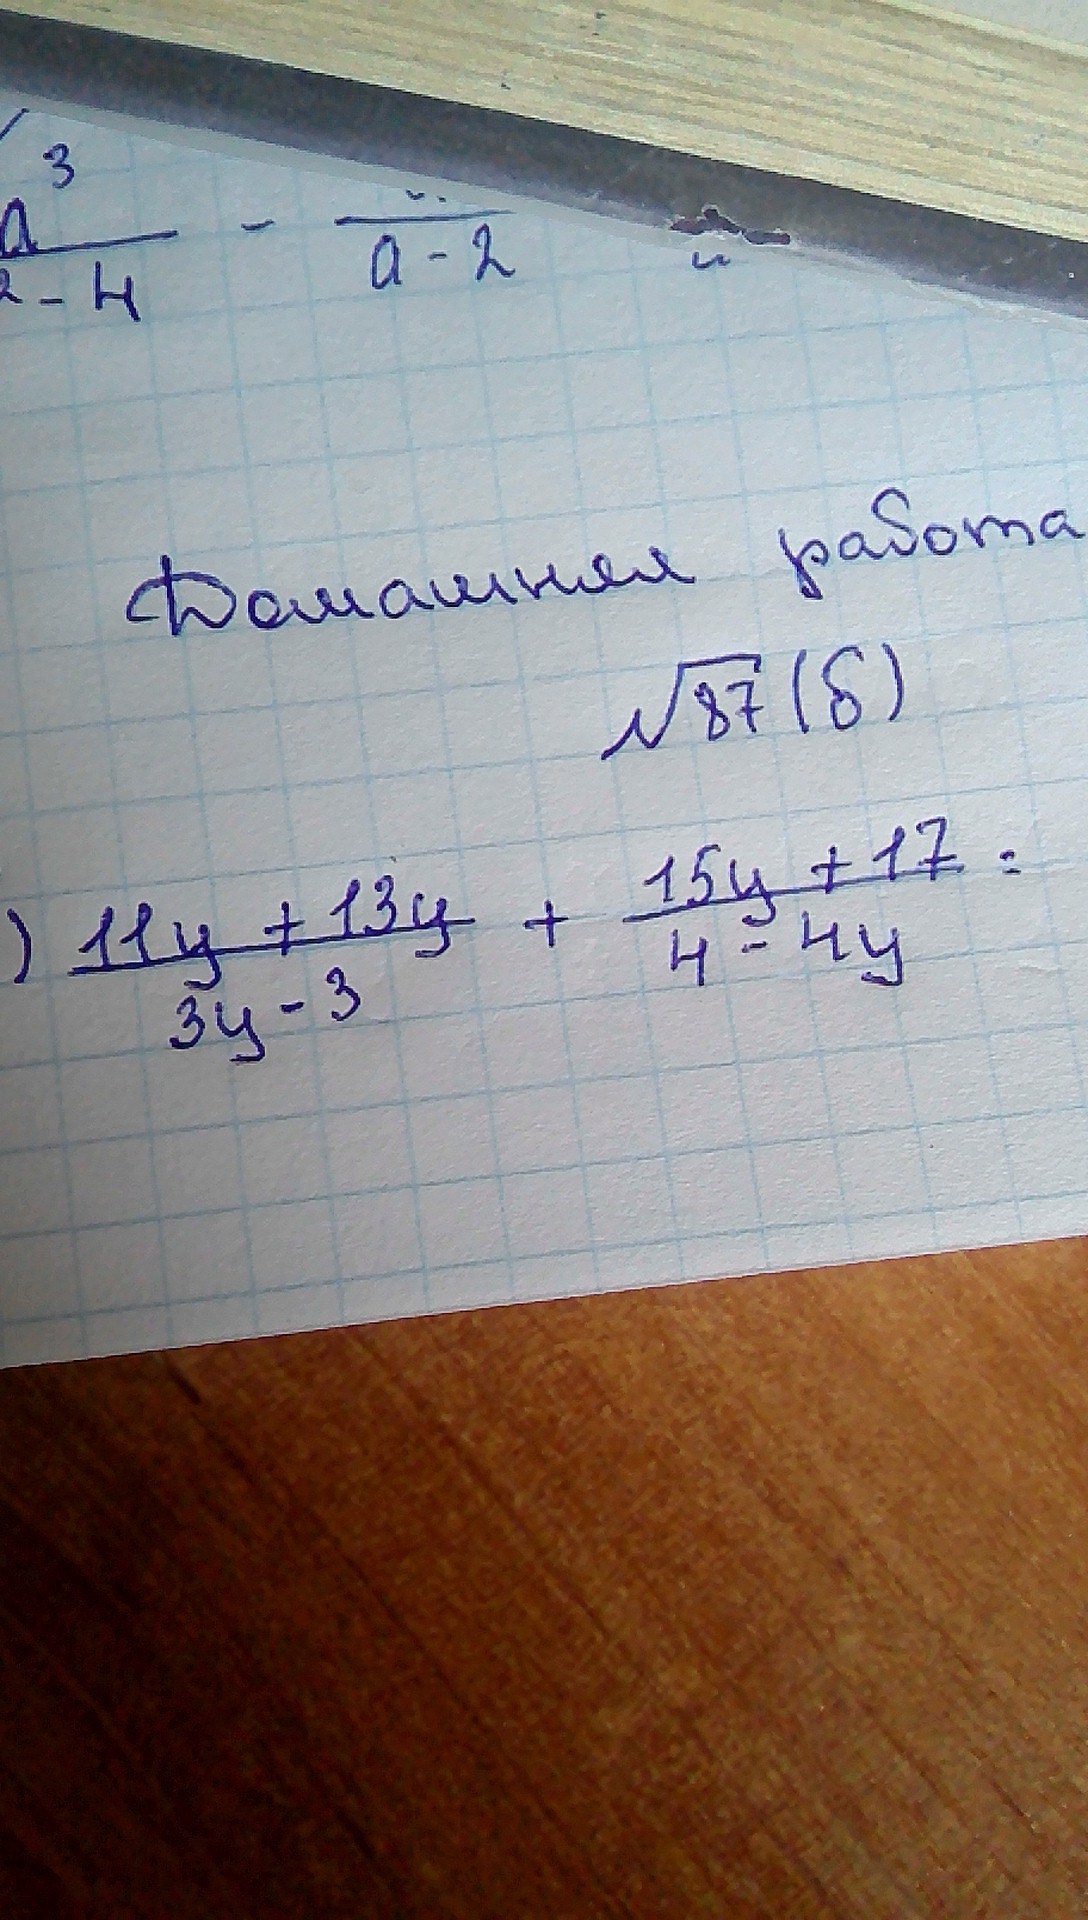 a³/²-4 - /a-2
Домашняя работа
√87 (б)
) 11y + 13y/3y - 3 + 15y + 17/4 - 4y =